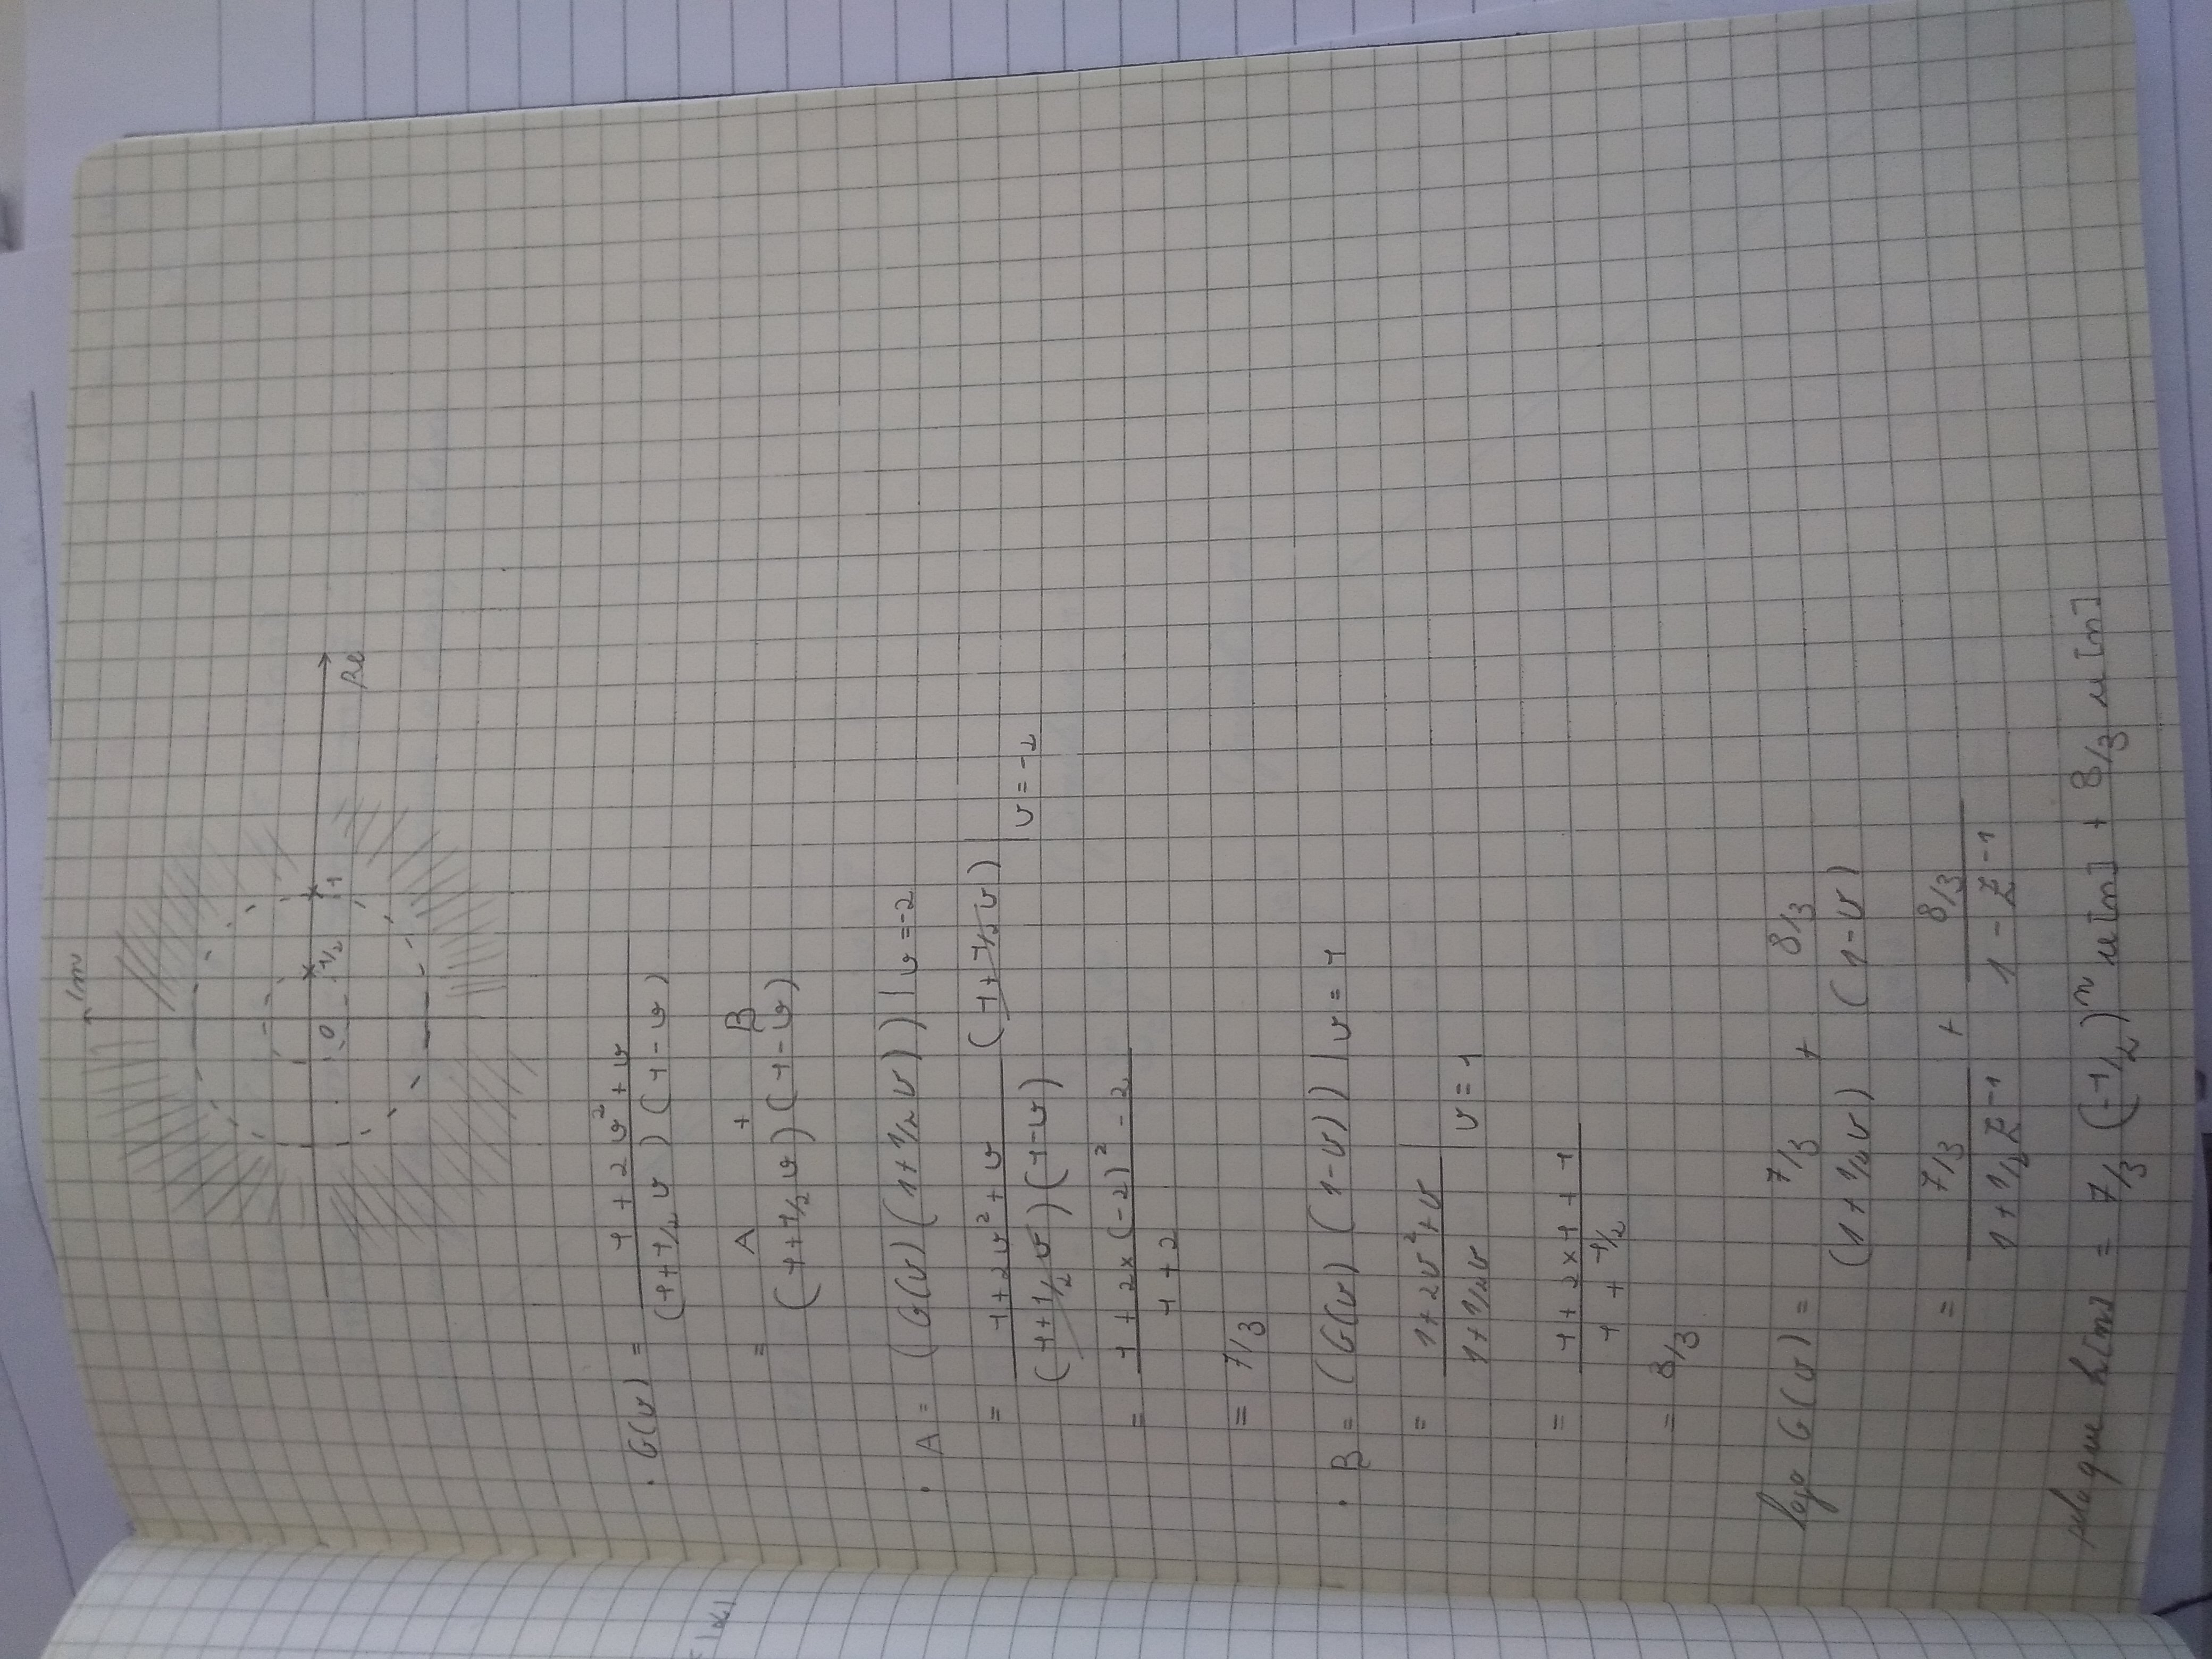 Im
0 1/2 1
Re
• G(v) = (1 + 2v² + v) / ((1 + 1/2 v)(1 - v))
= A / (1 + 1/2 v) + B / (1 - v)
• A = (G(v)(1 + 1/2 v))|v = -2
= (1 + 2v² + v) / ((1 + 1/2 v)(1 - v)) (1 + 1/2 v) | v = -2
= (1 + 2 × (-2)² - 2) / (1 + 2)
= 7/3
• B = (G(v)(1 - v))|v = 1
= (1 + 2v² + v) / (1 + 1/2 v) | v = 1
= (1 + 2 × 1 + 1) / (1 + 1/2)
= 8/3
logo G(v) = 7/3 / (1 + 1/2 v) + 8/3 / (1 - v)
= 7/3 / (1 + 1/2 z⁻¹) + 8/3 / (1 - z⁻¹)
pelo que h[n] = 7/3 (-1/2)ⁿ u[n] + 8/3 u[n]